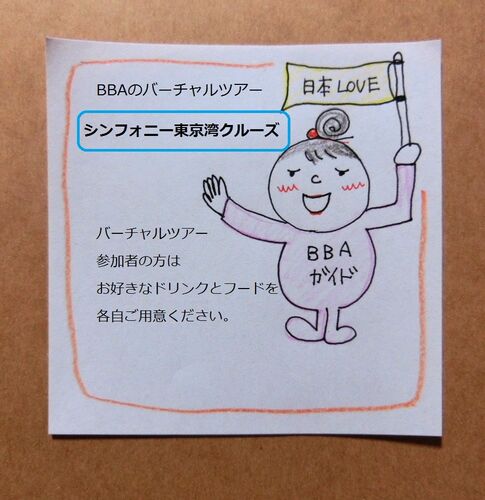 BBAのバーチャルツアー
シンフォニー東京湾クルーズ
日本 LOVE
バーチャルツアー
参加者の方は
お好きなドリンクとフードを
各自ご用意ください。
BBA
ガイド